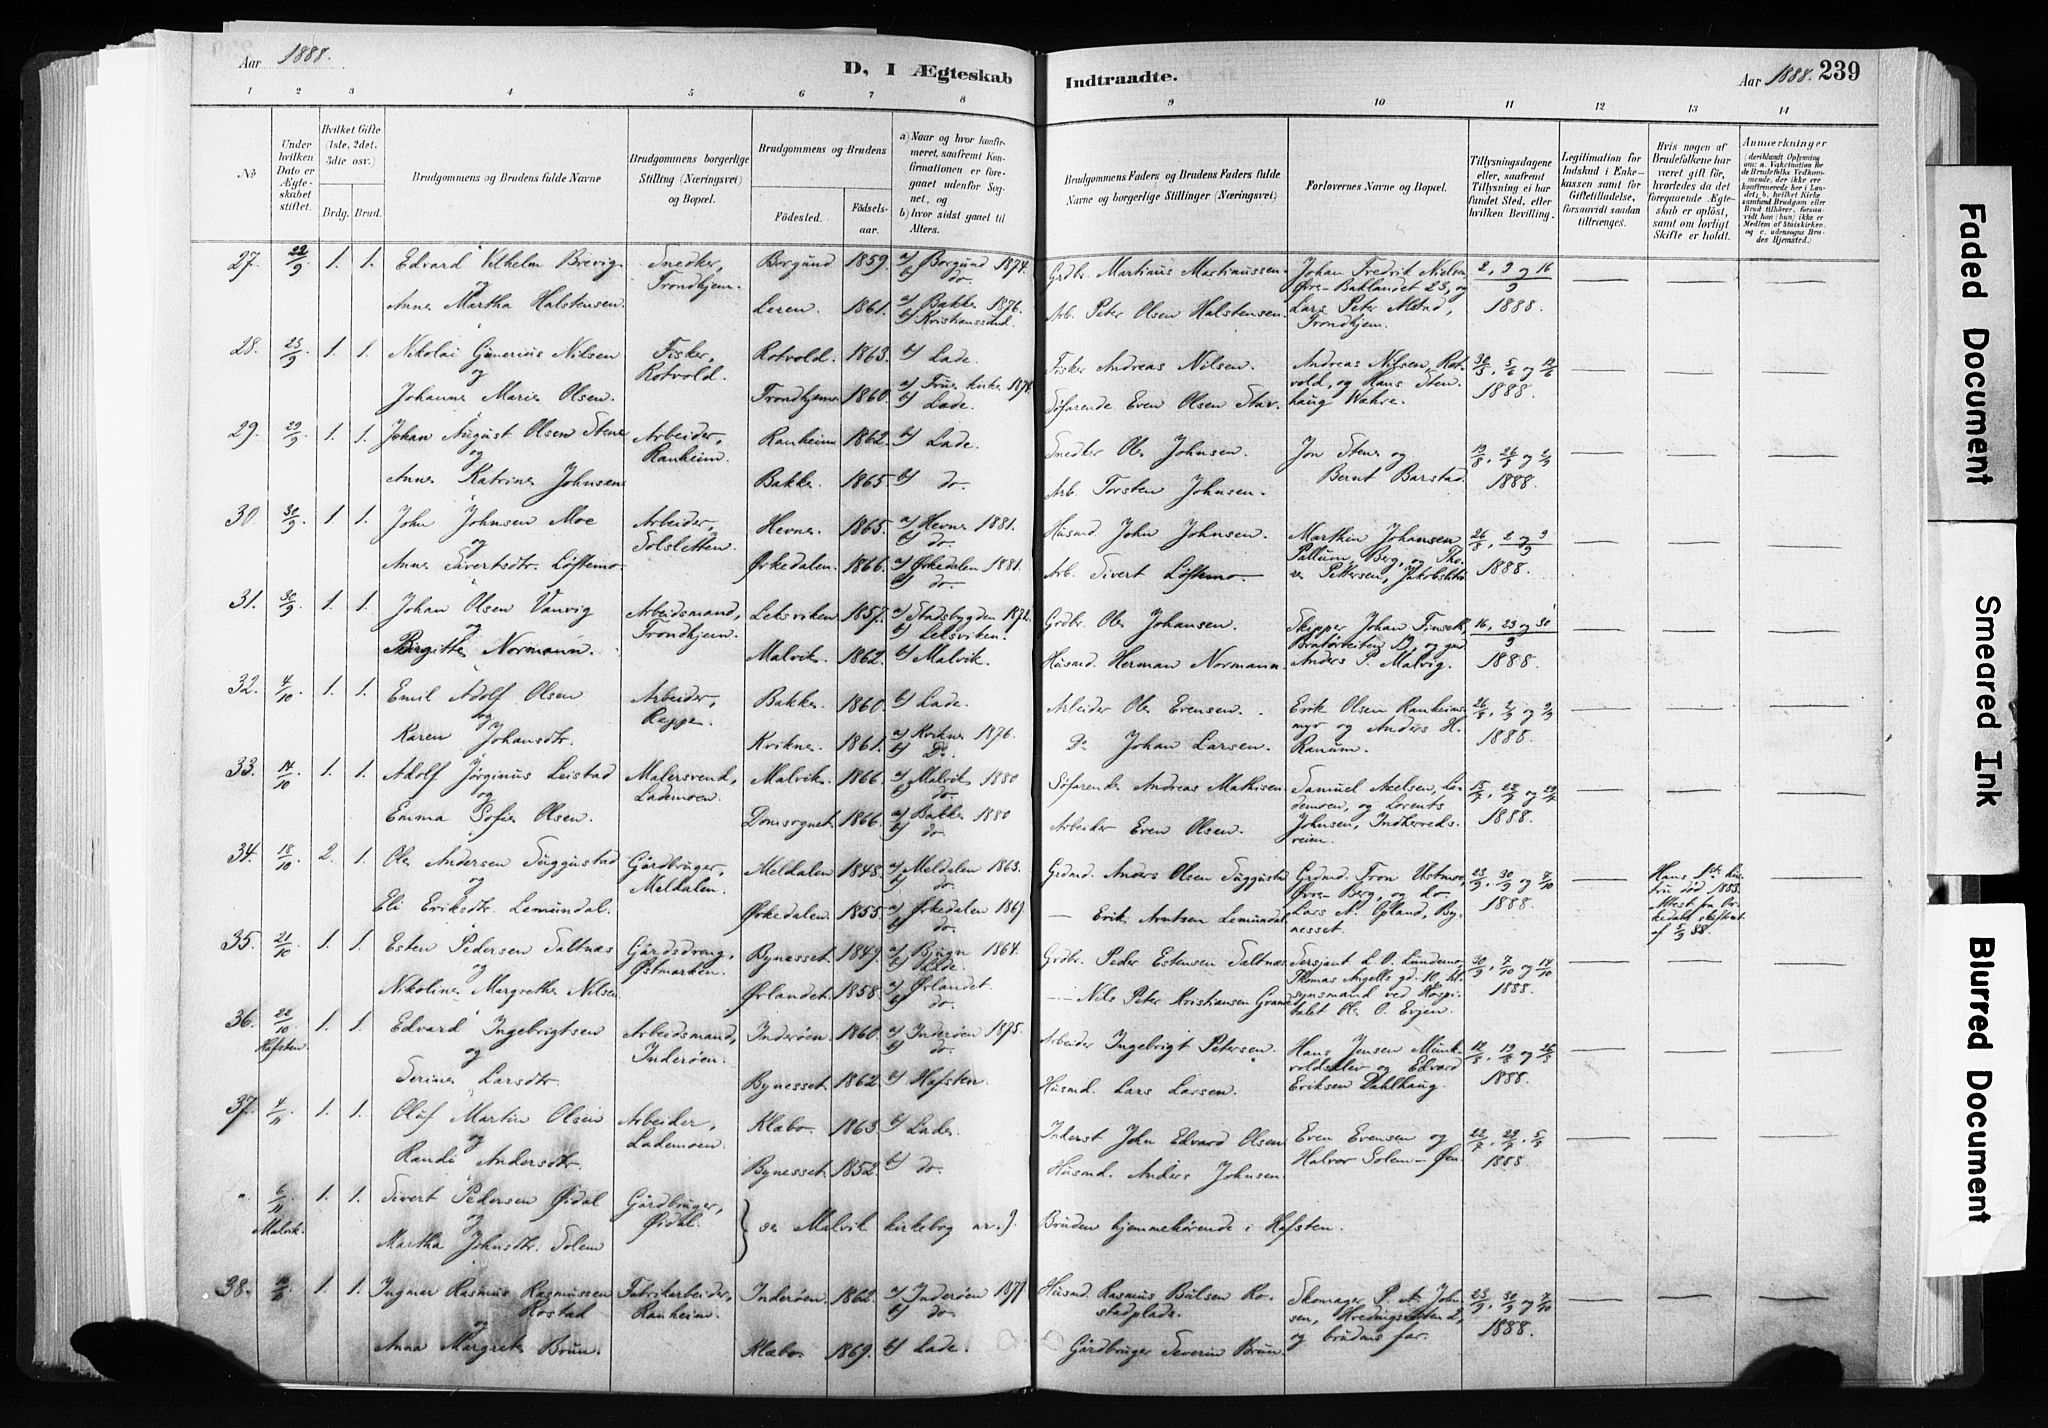 Aar 1888. D, I Ægteskab Indtraadte. Aar 1888. 239
1 2 3 4 5 6 7 8 9 10 11 12 13 14
№
Under hvilken Dato er Ægteskabet stiftet.
Hvilket Gifte (1ste, 2det, 3die osv.)
Brdg. Brud.
Brudgommens og Brudens fulde Navne
Brudgommens borgerlige Stilling (Næringsvei) og Bopæl.
Brudgommens og Brudens
Fødested. Fødselsaar.
a) Naar og hvor konfirmeret, saafremt Konfirmationen er foregaaet udenfor Sognet, og
b) hvor sidst gaaet til Alters.
Brudgommens Faders og Brudens Faders fulde Navne og borgerlige Stillinger (Næringsvei)
Forlovernes Navne og Bopæl.
Tillysningsdagene eller, saafremt Tillysning ei har fundet Sted, efter hvilken Bevilling.
Legitimation for Indskud i Enkekassen samt for Giftetilladelse, forsaavidt saadan tiltrænges.
Hvis nogen af Brudefolkene har været gift før, hvorledes da det foregaaende Ægteskab er opløst, samt om lovligt Skifte er holdt.
Anmærkninger
27. 22/9 1. 1. Edvard Vilhelm Brevig Snedker, Borgund 1859. a) Borgund 1874. Grdbr. Martinus Martinussen. Johan Fredrik Nielsen 2, 9 og 16/9
og Trondhjem. b) do. Øvre-Baklandet 23, og
Anne Martha Halstensen. Leren. 1861. a) Bakke 1876. Arb. Peter Olsen Halstensen. Lars Peter Alstad, 1888.
b) Kristianssund. Trondhjem.
28. 23/9 1. 1. Nikolai Gunerius Nilsen Fisker, Rotvold. 1863. b) Lade. Fisker Andreas Nilsen. Andreas Nilsen, Rot-
og Rotvold. vold, og Hans Sten-
Johanne Marie Olsen. Trondhjem 1860. a) Frue kirke 1874. Søfarende Even Olsen Stav. haug Wahre. 1888.
b) Lade.
29. 29/9 1. 1. Johan August Olsen Stene Arbeider, Ranheim 1862. b) Lade. Snedker Ole Johnsen. Jon Stene og 19/8, 26/8 og 2/9
og Ranheim. Bernt Barstad.
Anne Katrine Johnsen Bakke. 1865. b) do. Arb. Torsten Johnsen. 1888.
30. 30/9 1. 1. John Johnsen Moe Arbeider, Hevne. 1865. a) Hevne 1881. Husmd. John Johnsen. Marthin Johansen 26/8, 2 og 9/9
og Solsletten. b) do. Berg, og Tho-
Anne Sivertsdtr. Løftemo. Ørkedalen. 1866. a) Ørkedalen 1881. Arb. Sivert Løftemo. Pettersen, 1888.
b) do.
31. 30/9 1. 1. Johan Olsen Vanvig Arbeidsmand, Leksviken 1857. a) Stadsbygden 1872. Grdbr. Ole Johansen. Skipper Johan 16, 23 og 30/9
og Trondhjem. b) Leksviken.
Birgitte Normann. Malvik. 1862. b) Malvik. Husmd. Herman Normann Anders P. Malvig. 1888.
32. 4/10 1. 1. Emil Adolf Olsen Arbeider, Bakke. 1860. b) Lade. Arbeider Ole Evensen. Erik Olsen Ranheims- 26/8, 2/9 og 9/9
og Reppe. myr og Anders H.
Karen Johansdtr. Kvikne. 1861. a) Kvikne 1876. Do Johan Larsen. Ranum. 1888.
b) Do.
33. 14/10 1. 1. Adolf Jørginus Leistad Malersvend, Malvik 1866. a) Malvik 1880 Søfarende Andreas Mathisen Samuel Axelsen, La- 15/7, 22/7 og 29/7
og Lademoen. b) do. demoen, og Lorents
Emma Sofie Olsen. Domsognet 1866. a) Bakke 1880 Arbeider Even Olsen. Johnsen, Indherreds- 1888.
b) do. veien.
34. 18/10 2. 1. Ole Andersen Syggustad Gårdbruger, Meldalen 1848. a) Meldalen 1863. Grdmd. Anders Olsen Syggustad Grdmd. Tron 23/9, 30/9 og 7/10 Hans 1ste hus-
og Meldalen. b) do. Øvre-Berg, og do tru død 1883.
Eli Eriksdtr. Lemundal. Ørkedalen. 1855. a) Ørkedalen 1869. — Erik Arntsen Lemundal. Lars A. Opland, By- 1888. Attest fra Or-
b) do. nesset. kedals skifteret
af 5/9 88.
35. 21/10 1. 1. Esten Pedersen Saltnes Gårdsdreng, Bynesset 1849. a) Bjugn 1864. Grdbr. Peder Estensen Saltnes Sersjant L. O. Lundemo, 30/9, 7/10 og 14/10
og Østmarken. b) Lade. Thomas Angells gd. 10, til-
Nikoline Margrethe Nilsen Ørlandet 1858. a) Ørlandet. — Nils Peter Kristiansen synsmand ved Hospi- 1888.
b) do. talet Ole O. Evjen.
36. 22/10 1. 1. Edvard Ingebrigtsen Arbeidsmand, Inderøen 1860 a) Inderøen 1875. Arbeider Ingebrigt Petersen. Hans Jensen Munk- 12/8, 19/8 og 26/8
Hafsten. og Inderøen. b) do. voldsalev og Edvard
Serine Larsdtr. Bynesset 1862. b) Hafsten. Husmd. Lars Larsen. Eriksen Dahlhaug. 1888.
37. 4/11 1. 1. Oluf Martin Olsen Arbeider, Klæbo. 1863. b) Lade. Inderst John Edvard Olsen Even Evensen og 22/7, 29/7, 5/8
og Lademoen.
Randi Andersdtr. Bynesset. 1852. b) do. Husmd. Anders Johnsen. Halvor Solem — 1888.
". 6/11 1. 1. Sivert Pedersen Øidal Gårdbruger, } se Malvik kirkebog nr. 9. Bruden hjemmehørende i Hafsten.
Malvik. og Øidal.
Martha Johnsdtr. Solem
38. 1. 1. Ingmar Rasmus Rasmussen Fabrikarbeider, Inderøen 1862. a) Inderøen 1877 Husmd. Rasmus Ro- Skomager P. A. John- 23/9, 30/9 og 7/10
Rostad Ranheim. b) do. stadplads. sen,
og og brudens far. 1888.
Anna Margrete Brun. Klæbo. 1869. b) Lade. Gårdbruger Severin Brun.
Faded Document
Smeared Ink
Blurred Document